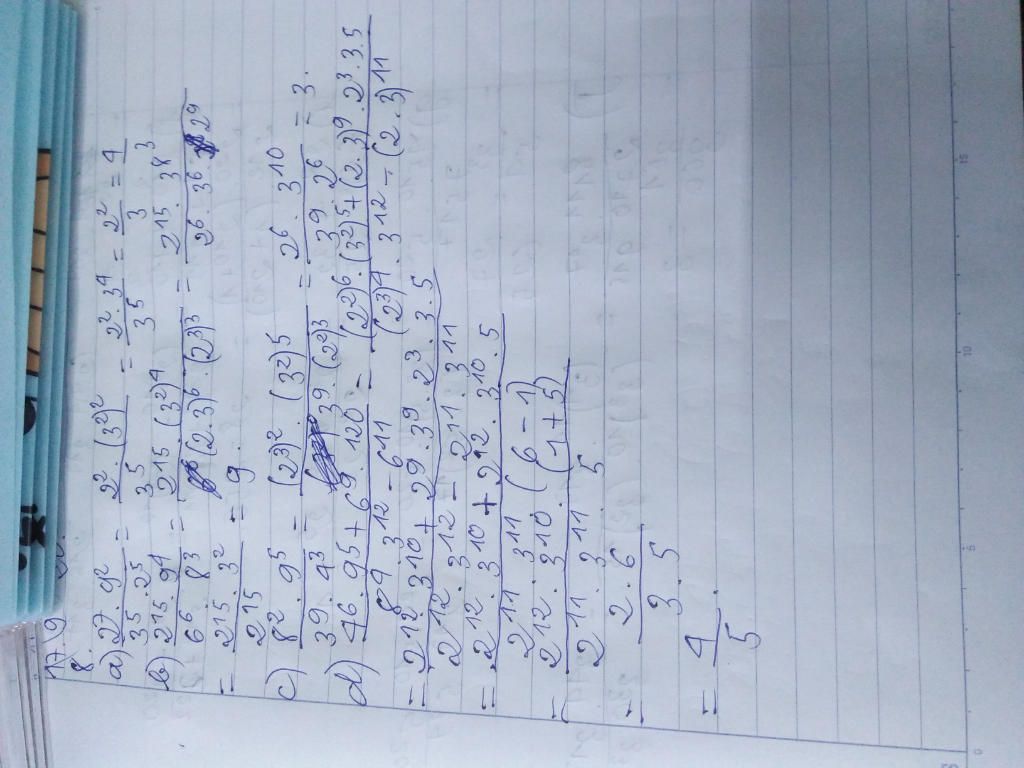 17. 9
8.
a) 27 . 9² / 3⁵ . 2⁵ = 2² (3²)² / 3⁵ = 2² . 3⁴ / 3⁵ = 2² / 3 = 4 / 3
b) 2¹⁵ . 9⁴ / 6⁶ . 8³ = 2¹⁵ . (3²)⁴ / (2.3)⁶ . (2³)³ = 2¹⁵ . 3⁸ / 2⁶ . 3⁶ . 2⁹
= 2¹⁵ . 3² / 2¹⁵ = 9
c) 8² . 9⁵ / 3⁹ . 4³ = (2³)² . (3²)⁵ / 3⁹ . (2²)³ = 2⁶ . 3¹⁰ / 3⁹ . 2⁶ = 3.
d) 4⁶ . 9⁵ + 6⁹ . 120 / 8⁴ . 3¹² - 6¹¹ = (2²)⁶ . (3²)⁵ + (2.3)⁹ . 2³ . 3 . 5 / (2³)⁴ . 3¹² - (2.3)¹¹
= 2¹² . 3¹⁰ + 2⁹ . 3⁹ . 2³ . 3 . 5 / 2¹² . 3¹² - 2¹¹ . 3¹¹
= 2¹² . 3¹⁰ + 2¹² . 3¹⁰ . 5 / 2¹¹ . 3¹¹ (6 - 1)
= 2¹² . 3¹⁰ . (1 + 5) / 2¹¹ . 3¹¹ . 5
= 2 . 6 / 3 . 5
= 4 / 5